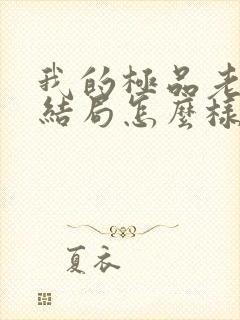 我的極品老
結局怎麼樣
夏衣